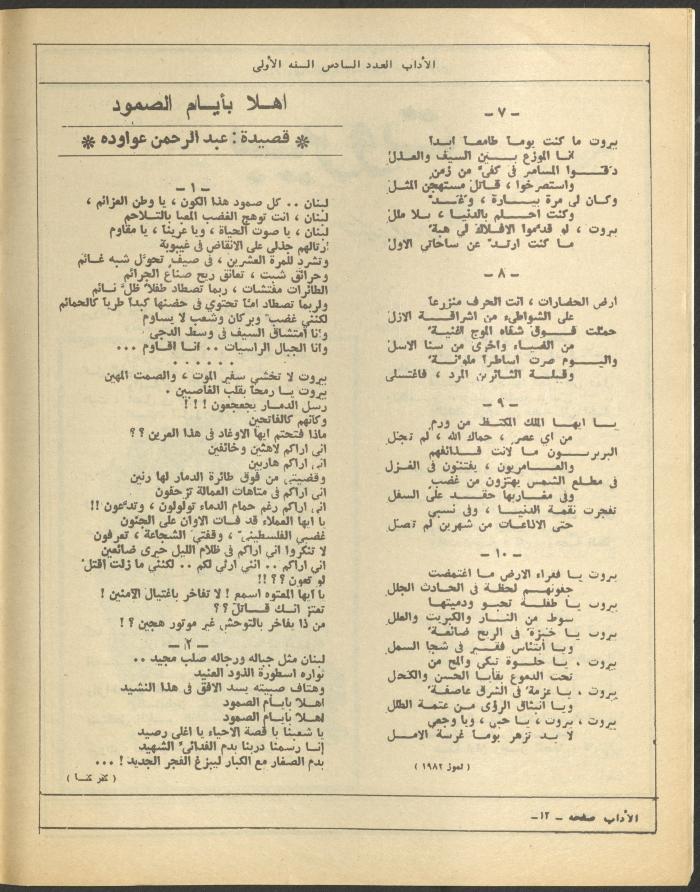 الآداب العدد السادس السنه الأولى
- ٧ -
بيروت ما كنت يوماً طامعاً ابداً
انا الموزع بين السيف والعذل
دقوا المسامر في كفيّ من زمن
واستصرخوا ، قاتل مستهجن المثل
وكان لي مرة بيارة ، وغد
وكنت احلم بالدنيا ، بلا ملل
بيروت ، لو قدموا الافلاك لي هبة
ما كنت ارتد عن ساحاتي الاول
- ٨ -
ارض الحضارات ، انت الحرف منزرعا
على الشواطيء من اشراقة الازل
حملت فوق شفاه الموج اغنية
من الضياء واخرى من سنا الاسل
واليوم صرت اساطراً ملونة
وقبلة الثائرين المرد ، فاغتسلي
- ٩ -
يا ايها الملك المكتظ من ورم
من اي عصر ، حماك الله ، لم تجل
البربريون ما لانت قذائفهم
والعامريون ، يفتنون في الغزل
في مطلع الشمس يهتزون من غضب
وفي مغاربها حقد على السفل
تفجرت نقمة الدنيا ، وفي نسبي
حتى الاذاعات من شهرين لم تصل
- ١٠ -
بيروت يا فقراء الارض ما اغتمضت
جفونهم لحظة في الحادث الجلل
بيروت يا طفلة تحبو ودميتها
سوط من النار والكبريت والعلل
بيروت يا خبزة في الريح ضائعة
ويا ابتئاس فقير في شجا السمل
بيروت ، يا حلوة تبكي والمح من
تحت الدموع بقايا الحسن والكحل
بيروت ، يا عزمة في الشرق عاصفة
ويا انبثاق الرؤى من عتمة الطلل
بيروت ، بيروت ، يا حبي ، ويا وجعي
لا بد تزهر يوماً غرسة الامل
( تموز ١٩٨٢ )
اهلا بأيام الصمود
* قصيدة : عبد الرحمن عواوده *
- ١ -
لبنان .. كل صمود هذا الكون ، يا وطن العزائم ،
لبنان ، انت توهج الغضب المعبا بالتلاحم
لبنان ، يا صوت الحياة ، ويا عرينا ، يا مقاوم
ارتالهم جذلى على الانقاض في غيبوبة
وتشرد للمرة العشرين ، في صيف تحول شبه غائم
وحرائق شبت ، تعانق ريح صناع الجرائم
الطائرات مفتشات ، ربما تصطاد طفلاً ظل نائم
ولربما تصطاد اماً تحتوي في حضنها كبداً طريا كالحمائم
لكنني غضب وبركان وشعب لا يساوم
وانا امتشاق السيف في وسط الدجى
وانا الجبال الراسيات .. انا اقاوم ...
. . . . . .
بيروت لا تخشي سفير الموت ، والصمت المهين
بيروت يا رمحاً بقلب الغاصبين .
رسل الدمار يجعجعون ! ! !
وكانهم كالفاتحين
ماذا فتحتم ايها الاوغاد في هذا العرين ؟ ؟
اني اراكم لاهثين وخائفين
اني اراكم هاربين
وقضيتي من فوق طائرة الدمار لها رنين
اني اراكم في متاهات العمالة تزحفون
اني اراكم رغم حمام الدماء تولولون ، وتدعون !!
يا ايها العملاء قد فات الاوان على الجنون
غضبي الفلسطيني ، وقفتي الشجاعة ، تعرفون
لا تنكروا اني اراكم في ظلام الليل حيرى ضائعين
اني اراكم .. انني ارثي لكم .. لكنني ما زلت اقتل
لو تعون ؟؟ !!
يا ايها المعتوه اسمع ! لا تفاخر باغتيال الآمنين !
تعتز انك قاتل ؟؟
من ذا يفاخر بالتوحش غير موتور هجين ؟ !
- ٢ -
لبنان مثل جباله ورجاله صلب مجيد ..
ثواره اسطورة الذود العنيد
وهتاف صبيته يسد الافق في هذا النشيد
اهلا بأيام الصمود
اهلا بأيام الصمود
يا شعبنا يا قصة الاحياء يا اغلى رصيد
إنا رسمنا دربنا بدم الفدائي الشهيد
بدم الصغار مع الكبار ليبزغ الفجر الجديد ! ...
( كفر كنا )
الآداب صفحه - ١٢-